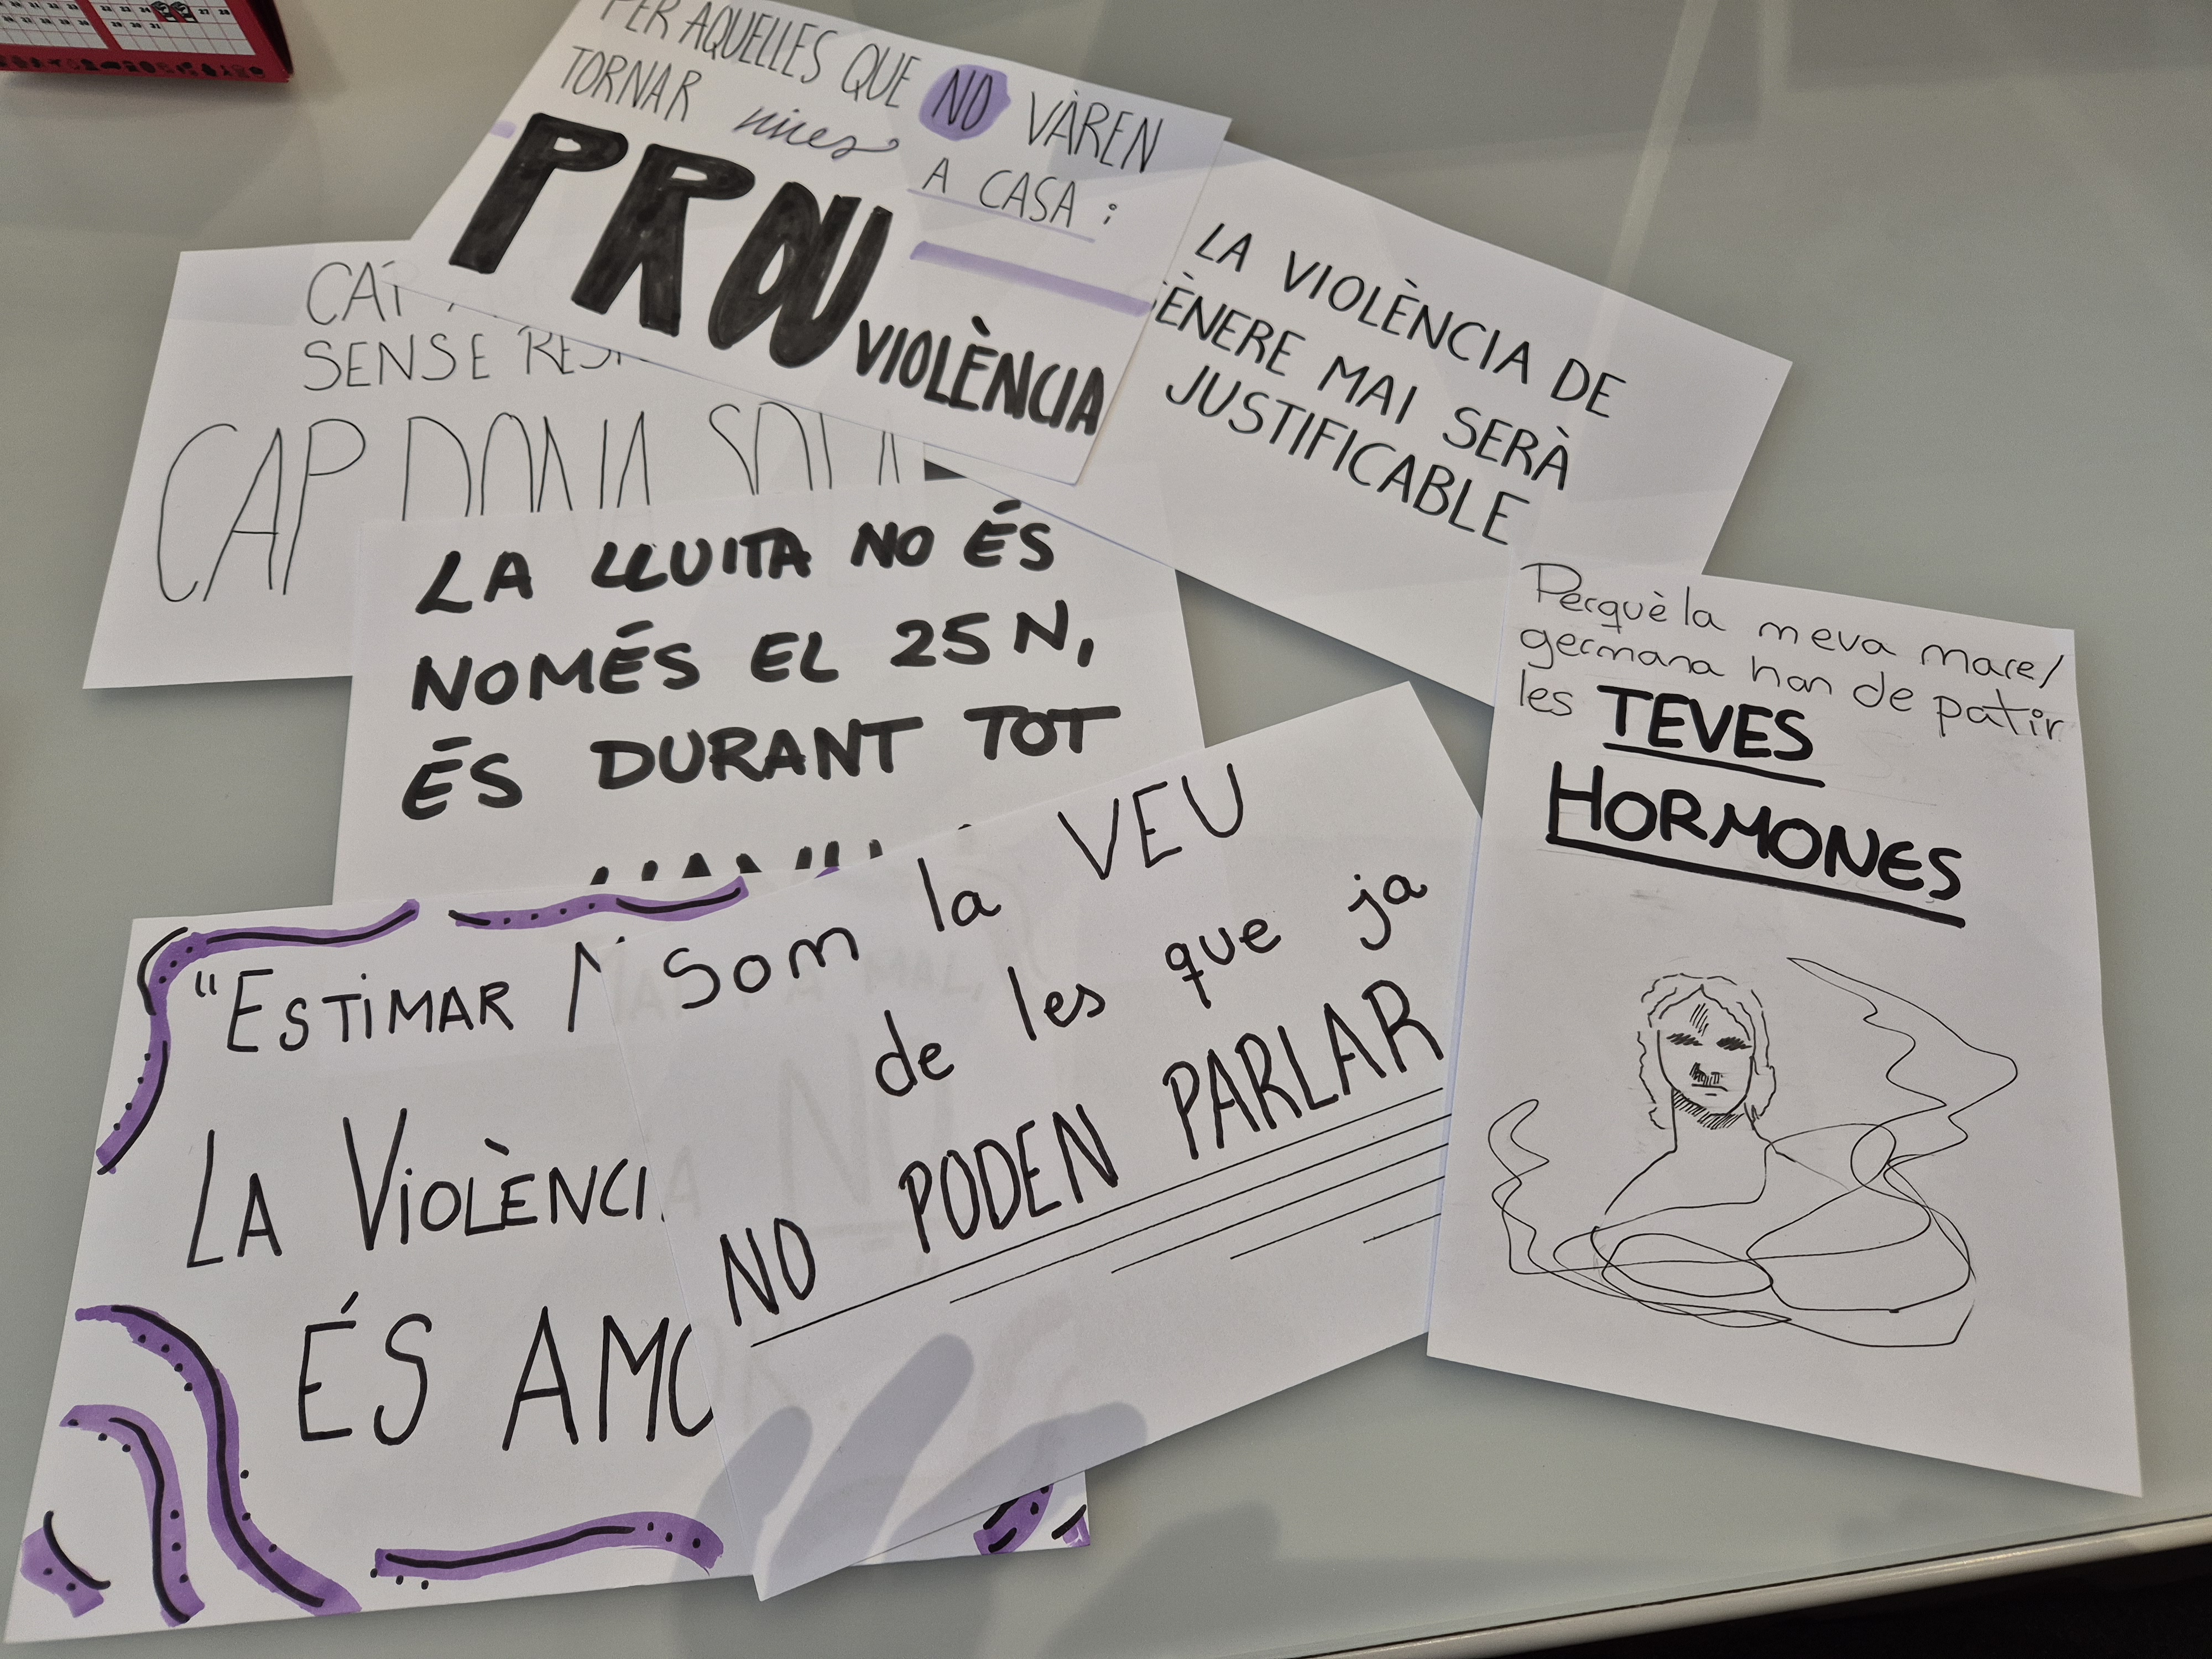 PER AQUELLES QUE NO VÀREN
TORNAR vives A CASA:
PROU
VIOLÈNCIA
LA VIOLÈNCIA DE
GÈNERE MAI SERÀ
JUSTIFICABLE
SENSE
CAP DONA SOLA
LA LLUITA NO ÉS
NOMÉS EL 25N,
ÉS DURANT TOT
Perquè la meva mare/
germana han de patir
les TEVES
HORMONES
"ESTIMAR
LA VIOLÈNCIA
ÉS AMOR
Som la VEU
de les que ja
NO PODEN PARLAR